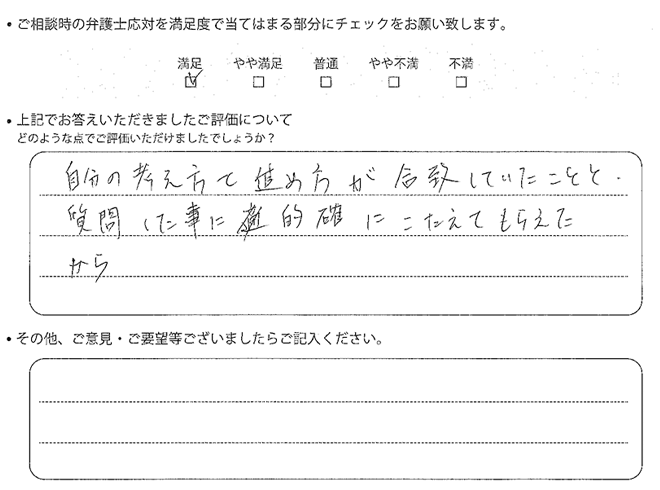 • ご相談時の弁護士応対を満足度で当てはまる部分にチェックをお願い致します。
満足 やや満足 普通 やや不満 不満
• 上記でお答えいただきましたご評価について
どのような点でご評価いただけましたでしょうか？
自分の考え方と進め方が合致していたことと、
質問した事に的確にこたえてもらえた
から
• その他、ご意見・ご要望等ございましたらご記入ください。